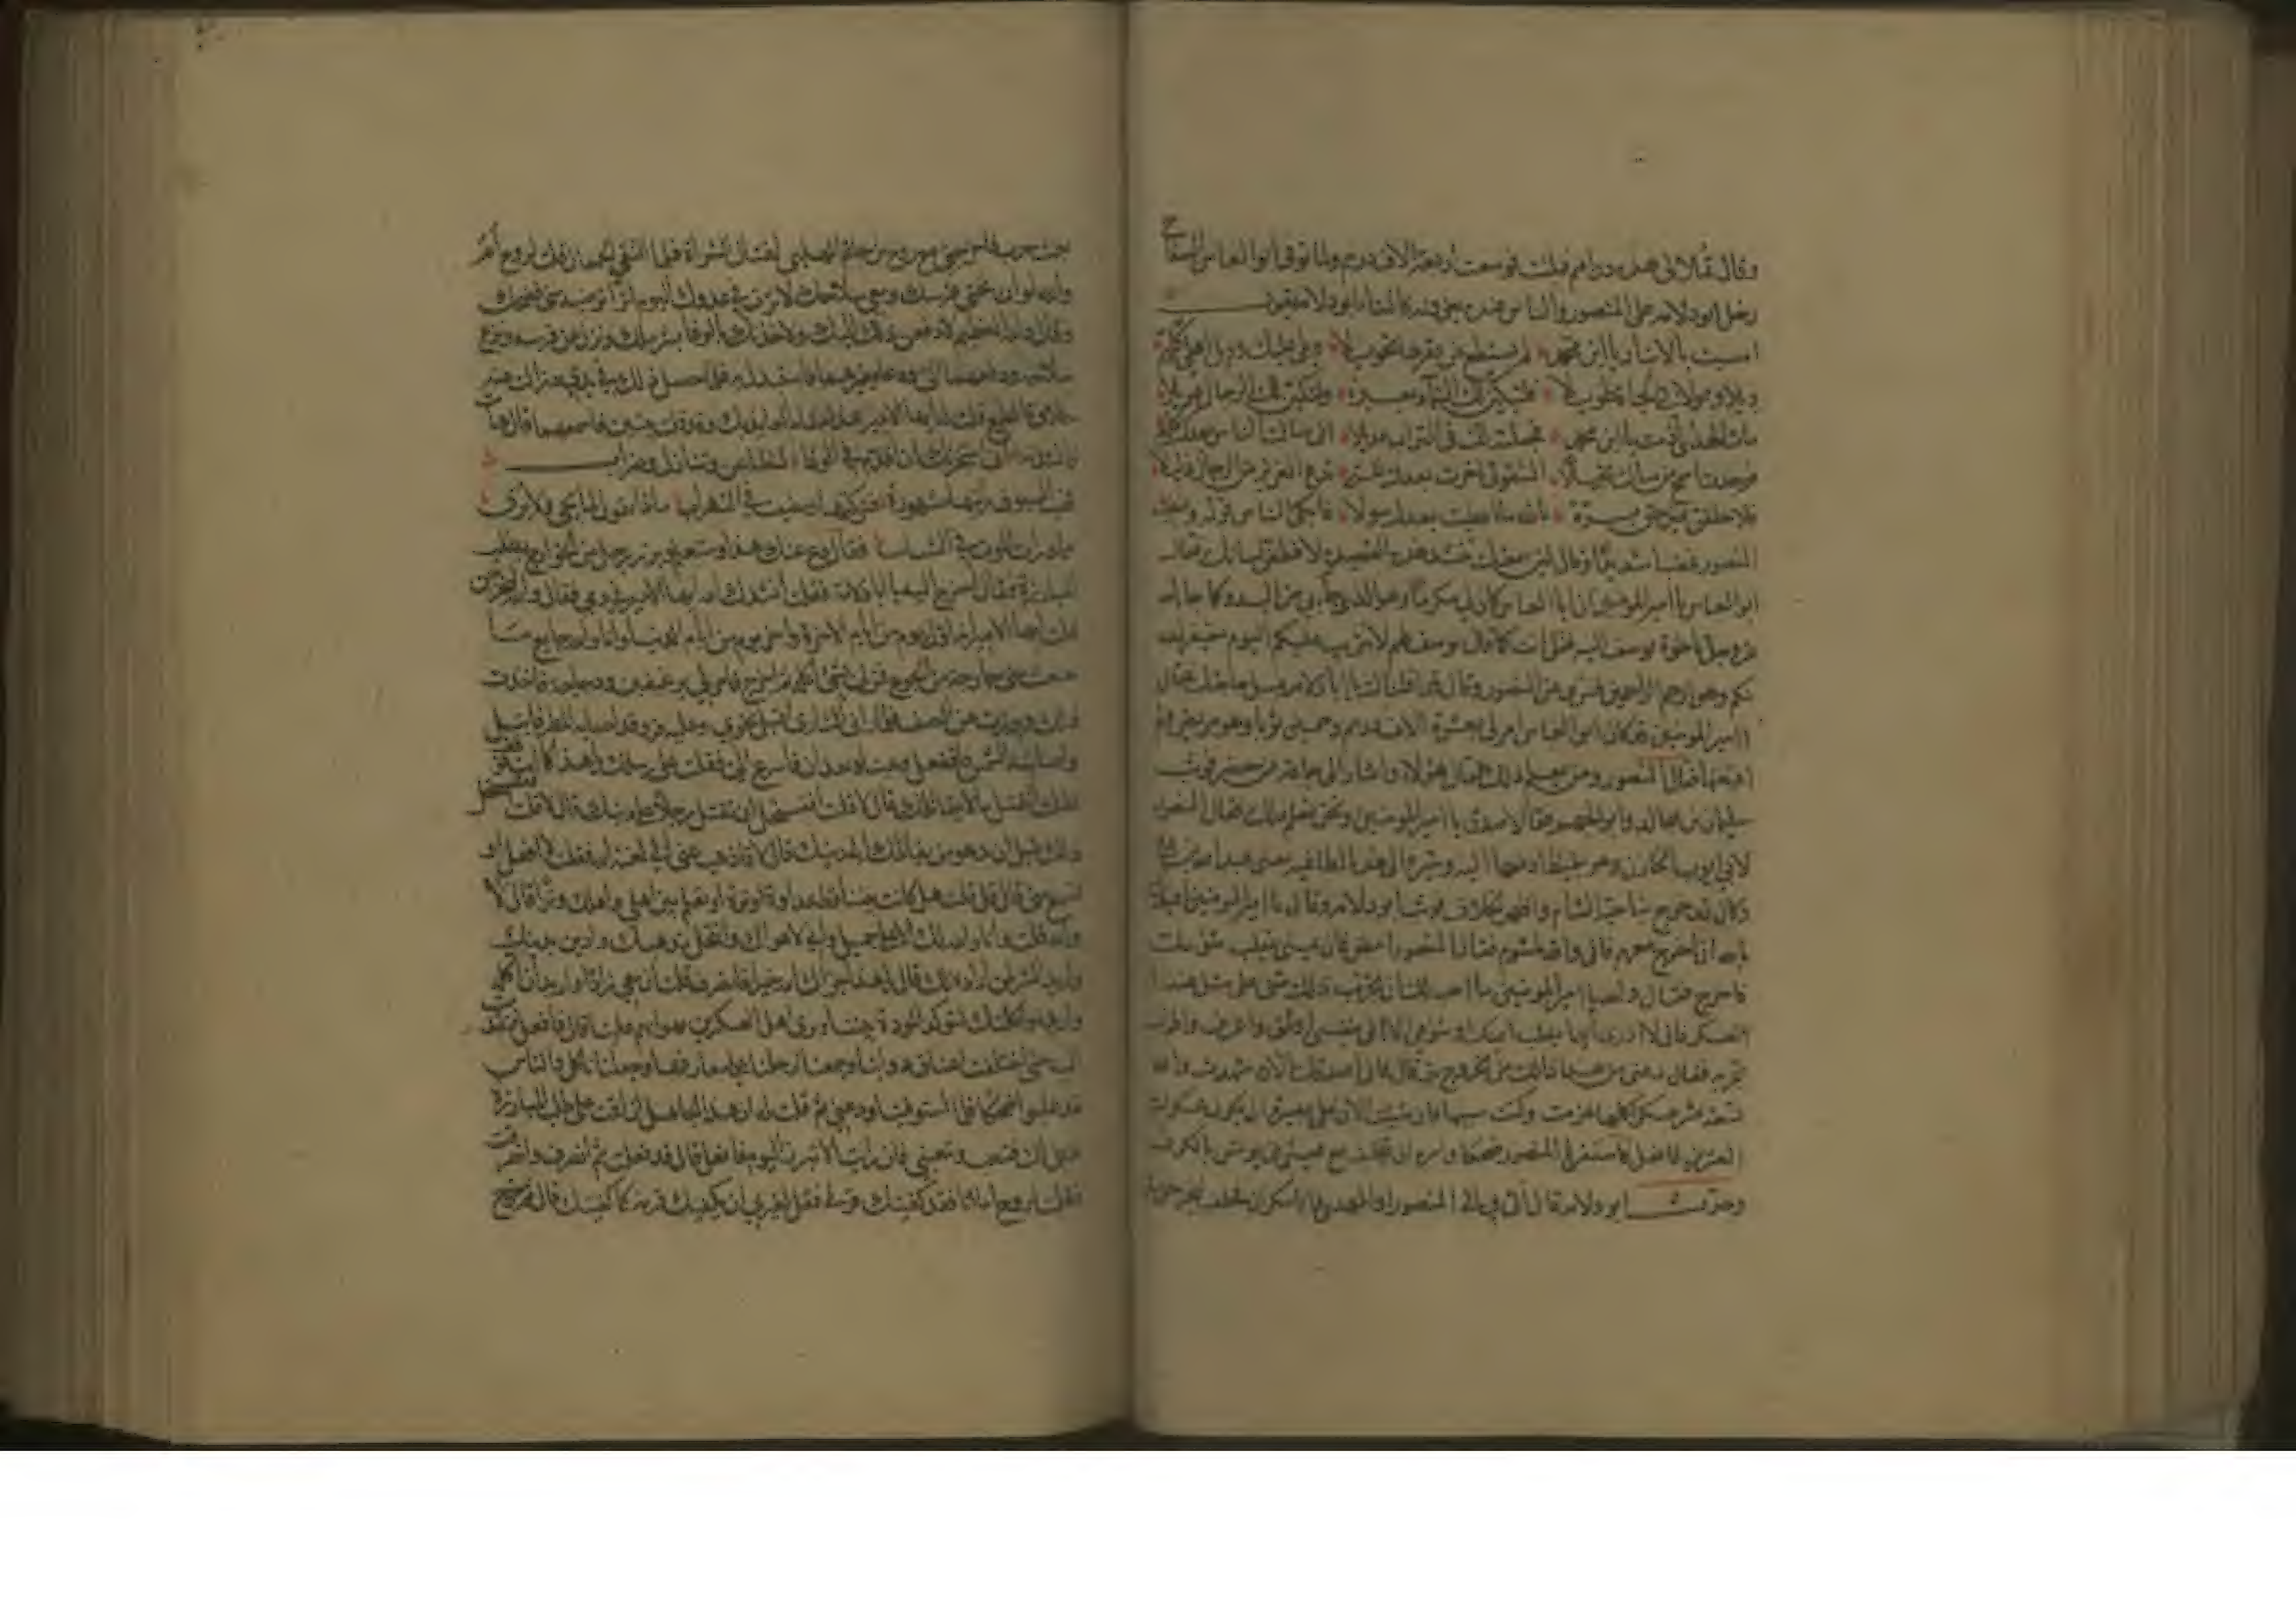 وقال تملا لى هذه دراهم فملت فوسعت اربعة الاف درهم ولما توفى ابو العباس السفاح
دخل ابو دلامه على المنصور والناس عنده يعزونه فانشا ابو دلامه يقول
امسيت بالانبار يا ابن محمد لم تستطع عن عقرها تحويلا ويلى عليك وويل اهلى كلهم
ويلا وعولا فى الحياة طويلا فلتبكين لك السماء بعبرة ولتبكين لك الرجال عويلا
مات الندى اذ مت يا ابن محمد فجعلته لك فى التراب عديلا انى سالت الناس بعدك كلهم
فوجدت اسمح من سالت بخيلا الشقوتى اخرت بعدك للتى تدع العزيز من الرجال ذليلا
فلاحلفن يمين حق برة تالله ما اعطيت بعدك سولا فابكى الناس قوله وغضب
المنصور غضبا شديدا وقال لئن سمعتك تنشد هذه القصيدة لاقطعن لسانك فقال
يا امير المومنين ان ابا العباس كان لى مكرما وهو الذى جاء بى من البدو كما جا الله
عز وجل باخوة يوسف اليه فقل انت كما قال يوسف لهم لا تثريب عليكم اليوم يغفر الله
لكم وهو ارحم الراحمين فسرى عن المنصور وقال قد اقلناك يا ابا دلامه فسل حاجتك فقال
يا امير المومنين قد كان ابو العباس امر لى بعشرة الاف درهم وخمسين ثوبا وهو مريض ولم
اقبضها فقال المنصور ومن يعلم ذلك فقال هولا واشار الى جماعة ممن حضر فوثب
سليمان بن مجالد وابو الجهم فقالا صدق يا امير المومنين ونحن نعلم ذلك فقال المنصور
لابى ايوب الخازن وهو مغيظ ادفعها اليه وسيره الى هذا الطاغيه يعنى عبد الله بن على
وكان قد خرج بناحية الشام واظهر الخلاف فوثب ابو دلامه وقال يا امير المومنين اعيذك
بالله ان اخرج معهم فانى والله لمشوم فقال المنصور امض فان يمنى يغلب شومك
فاخرج فقال والله يا امير المومنين ما احب لك ان تجرب ذلك منى على مثل هذا
العسكر فانى لا ادرى ايهما يغلب ايمنك او شومى الا انى بنفسى اوثق واعرف واطول
تجربه فقال دعنى من هذا فمالك من الخروج بد قال فانى اصدقك الان شهدت والله
تسعة عشر عسكرا كلها هزمت وكنت سببها فان شئت الان على بصيرة ان يكون عسكرك
العشرين فافعل فاستغرب المنصور ضحكا وامره ان يتخلف مع عيسى بن موسى بالكوفة
وحدث ابو دلامه قال اتى بى الى المنصور او المهدى وانا سكران فحلف ليخرجنى فى
بعث حرب فاخرجنى مع روح بن حاتم المهلبى لقتال الشراة فلما التقى الجمعان قلت لروح اما
والله لو ان تحتى فرسك ومعى سلاحك لاثرت فى عدوك اليوم اثرا ترتضيه فضحك
وقال والله العظيم لادفعن ذلك اليك ولاخذنك بالوفا بشرطك ونزل عن فرسه ونزع
سلاحه ودفعهما الى ودعا بغيرهما فاستبدل به فلما حصل ذلك فى يدى وزالت عنى
حلاوة الطمع قلت له ايها الامير هذا مقام العائذ بك وقد قلت بيتين فاسمعهما قال هات
فانشدته انى استجرتك ان اقدم فى الوغا لتطاعن وتنازل وضراب
فهب السيوف رايتها مشهورة فتركتها ومضيت فى الهراب ماذا تقول لما يجى ولا يرى
من بادرات الموت فى النشاب فقال دع عنك هذا وستعلم وبرز رجل من الخوارج يطلب
المبارزة فقال اخرج اليه يا ابا دلامة فقلت انشدك الله ايها الامير فى دمى فقال والله لتخرجن
فقلت ايها الامير انه اول يوم من ايام الاخرة واخر يوم من ايام الدنيا وانا والله جايع ما
شبعت منى جارحة من الجوع فمر لى بشى اكله ثم اخرج فامر لى برغيفين ودجاجة فاخذت
ذلك وبرزت عن الصف فلما رانى الشارى اقبل نحوى وعليه فرو قد اصابه المطر فابتل
واصابته الشمس فاقفعل وعيناه تقدان فاسرع الى فقلت على رسلك يا هذا كما انت فوقف
فقلت اتقتل من لا يقاتلك قال لا قلت افتستحل ان تقتل رجلا على دينك قال لا قلت
ذلك قبل ان تدعو من يقاتلك الى دينك قال لا فاذهب عنى الى لعنة الله فقلت لا افعل او
تسمع منى قال قل قلت هل كانت بيننا قط عداوة او ترة او تعلم بين اهلى واهلك وترا قال لا
والله قلت وانا والله لك الا على جميل وانى لاهواك وانتحل مذهبك وادين دينك
واريد الشر لمن اراده لك قال يا هذا جزاك الله خيرا فانصرف قلت ان معى زادا واريد ان اكله
واريد مواكلتك لتتوكد المودة بيننا ويرى اهل العسكرين هوانهم علينا قال فافعل فتقدمت
اليه حتى اختلفت اعناق دوابنا وجمعنا ارجلنا على معارفها وجعلنا ناكل والناس
قد غلبوا ضحكا فلما استوفينا ودعنى ثم قلت له ان هذا الجاهل ان اقمت على طلب المبارزة
ندبنى اليك فتتعب وتتعبنى فان رايت الا تبرز اليوم فافعل قال قد فعلت ثم انصرف وانصرفت
فقلت لروح اما انا فقد كفيتك قرنى فقل لغيرى ان يكفيك قرنه كما كفيتك قال ثم خرج